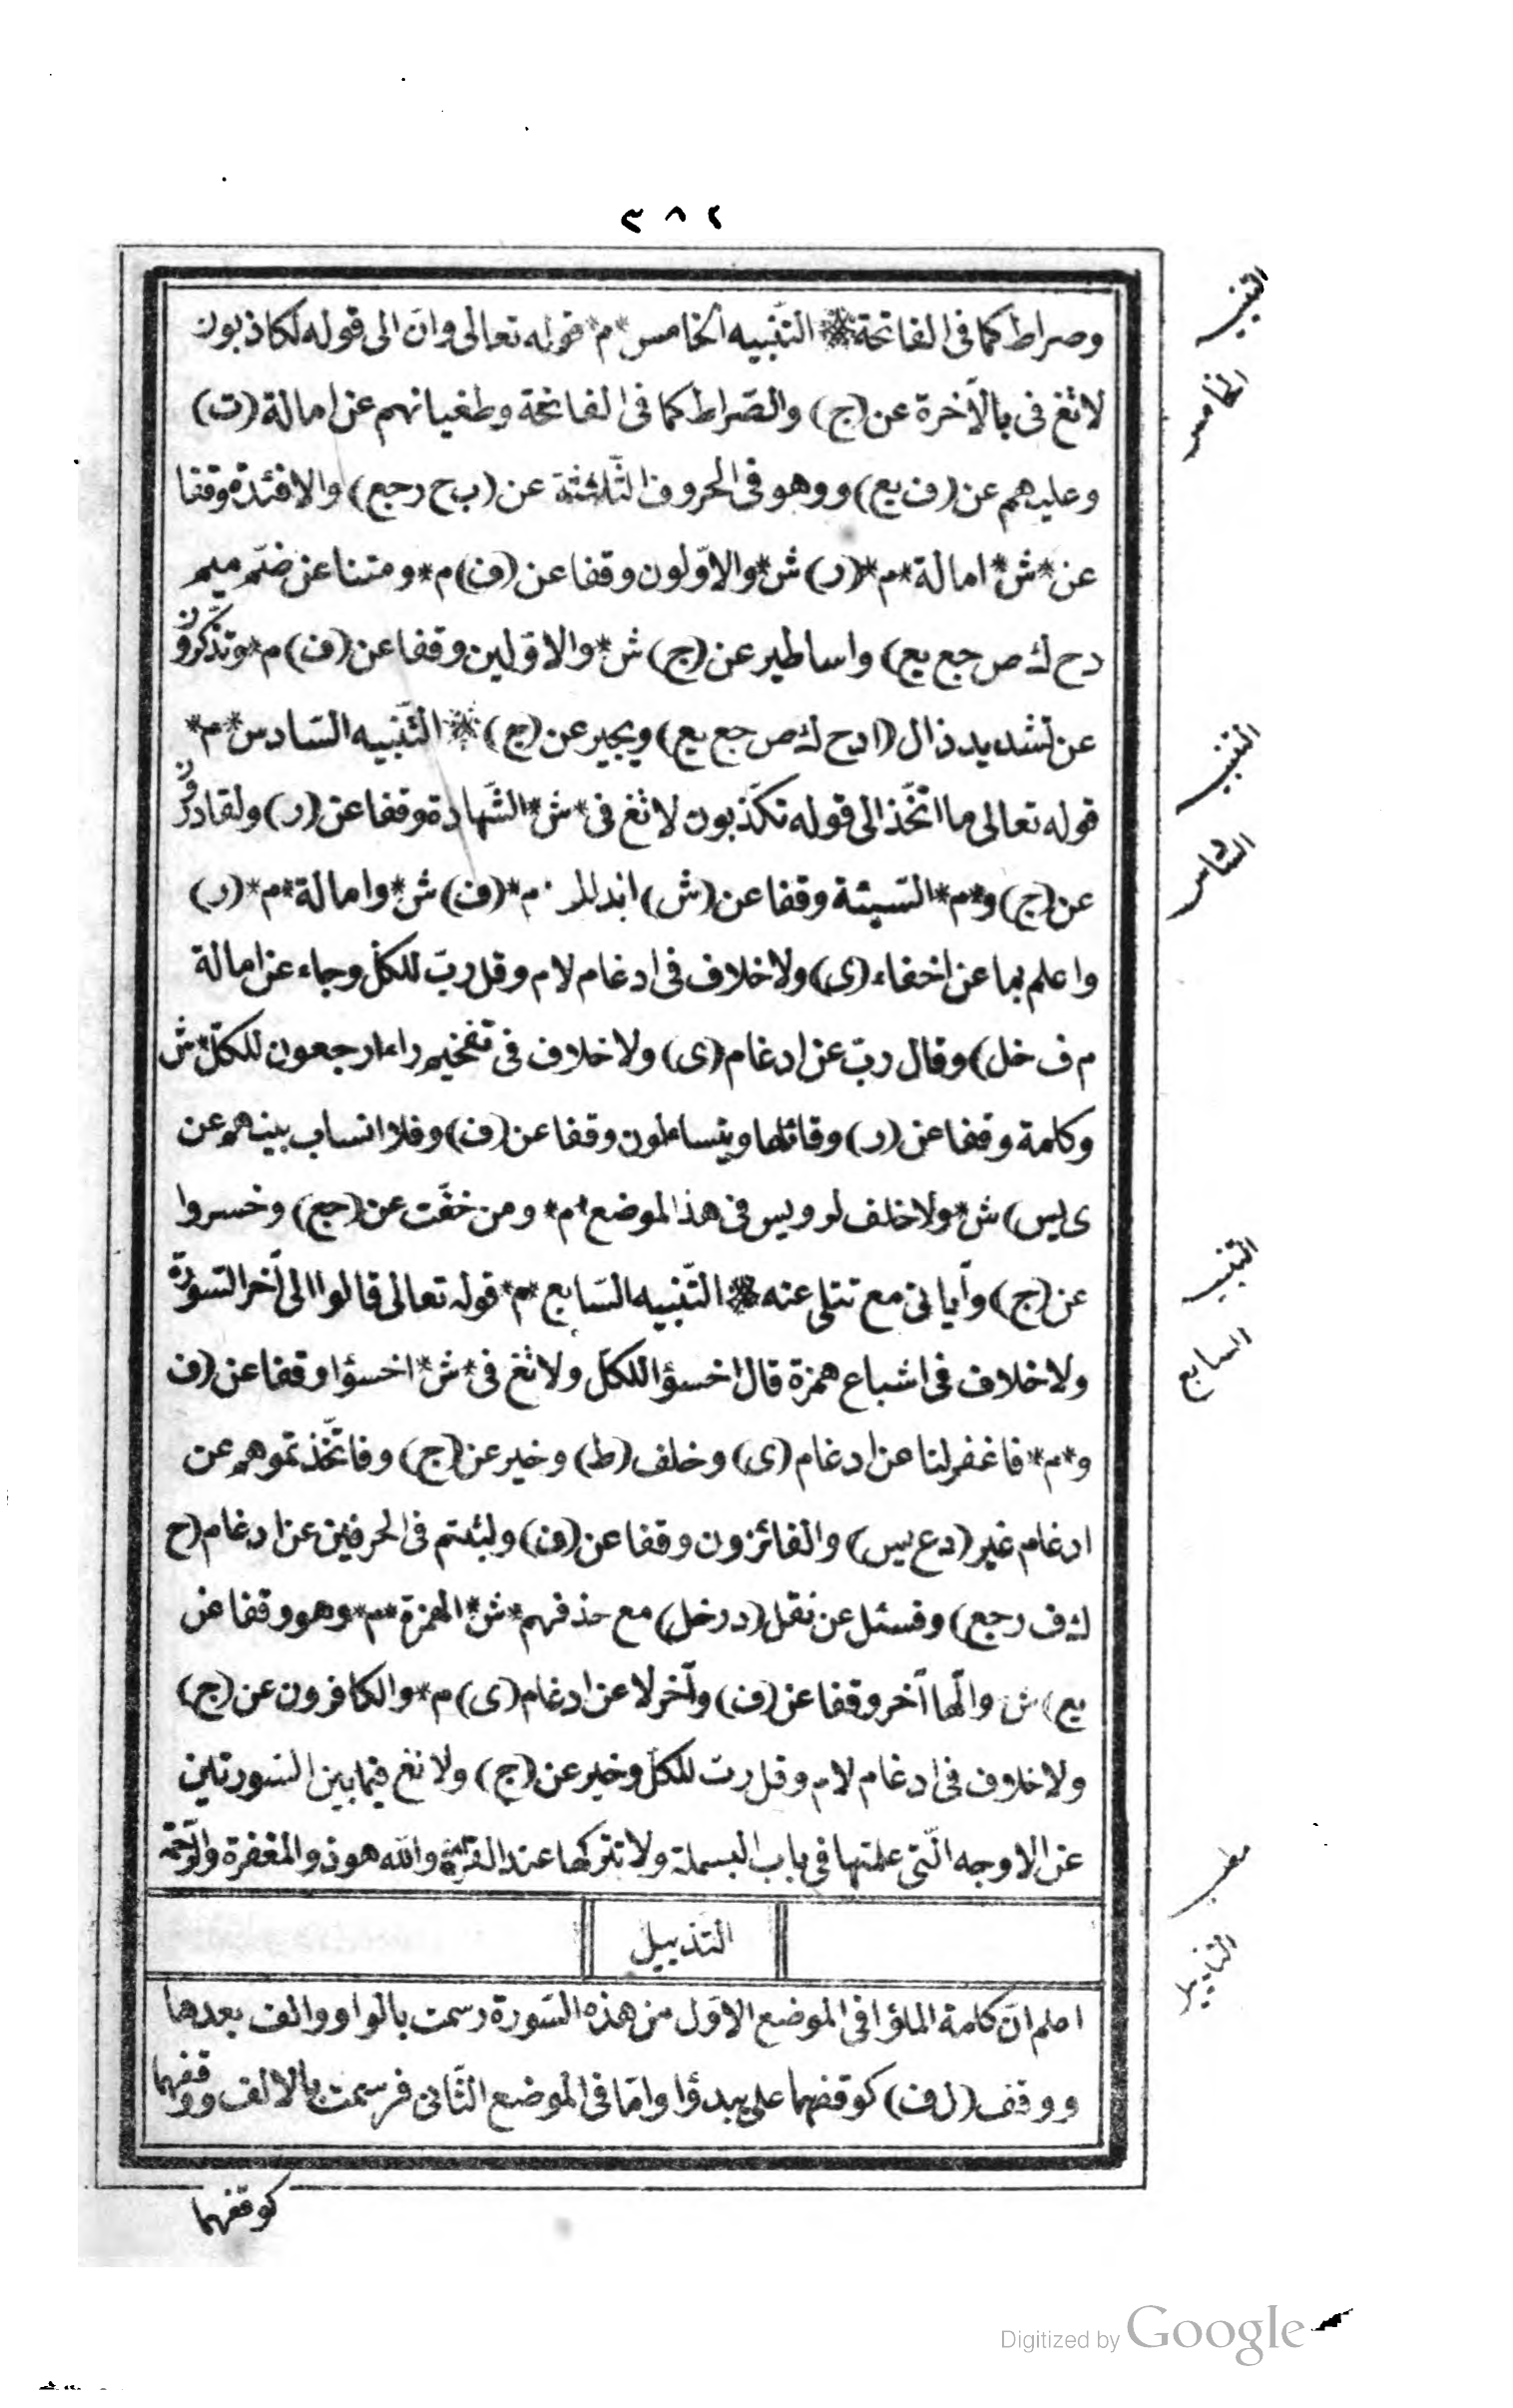 ٣٨٢
وصراط كما فى الفاتحة * التّنبيه الخامس *م* قوله تعالى وانّ الى قوله لكاذبون
لا تغ فى بالآخرة عن (ج) والصّراط كما فى الفاتحة وطغيانهم عن امالة (ت)
وعليهم عن (ف يع) ووهو فى الحروف الثّلثة عن (ب ح ر جع) والافئدة وقفا
عن *ش* امالة *م* (ر) ش* والاوّلون وقفا عن (ف) م* ومتنا عن ضمّ ميم
د ح ك ص جع يع) واساطير عن (ج) ش* والاوّلين وقفا عن (ف) م* وتذكّرون
عن تشديد ذال (ا د ح ك ص جع يع) ويجير عن (ج) * التّنبيه السّادس *م*
قوله تعالى ما اتّخذ الى قوله تكذّبون لا تغ فى *ش* الشّهادة وقفا عن (ر) ولقادرون
عن (ج) و*م* السّيئة وقفا عن (ش) *م* (ف) ش* وامالة *م* (ر)
واعلم بما عن اخفاء (ى) ولا خلاف فى ادغام لام وقل ربّ للكلّ وجاء عن امالة
م ف خل) وقال ربّ عن ادغام (ى) ولا خلاف فى تفخيم راء ارجعون للكلّ *ش
وكلمة وقفا عن (ر) وقائلها ويتساءلون وقفا عن (ف) وفلا انساب بينهم عن
ى يس) ش* ولا خلف لرويس فى هذا الموضع *م* ومن خفّت عن (جع) وخسروا
عن (ج) وآياتى مع تتلى عنه * التّنبيه السّابع *م* قوله تعالى قالوا الى آخر السّورة
ولا خلاف فى اشباع همزة قال اخسؤا للكلّ ولا تغ فى *ش* اخسؤا وقفا عن (ف
و*م* فاغفر لنا عن ادغام (ى) وخلف (ط) وخير عن (ج) وفاتّخذتموهم عن
ادغام غير (د ع يس) والفائزون وقفا عن (ف) ولبثتم فى الحرفين عن ادغام (ح
ك ف ر جع) وفسئل عن نقل (د ر خل) مع حذفهم *ش* الهمزة *م* وهو وقفا عن
يع) ش والٓها آخر وقفا عن (ف) وآخر لا عن ادغام (ى) م* والكافرون عن (ج)
ولا خلاف فى ادغام لام وقل ربّ للكلّ وخير عن (ج) ولا تغ فيما بين السّورتين
عن الاوجه الّتى علمتها فى باب البسملة ولا تتركها عند القرائة والله هو ذو المغفرة والرّحمة
التّذييل
اعلم انّ كلمة الملؤا فى الموضع الاوّل من هذه السّورة رسمت بالواو والف بعدها
ووقف (ل ف) كوقفهما على يبدؤا وامّا فى الموضع الثّانى فرسمت بالالف ووقفهما
كوقفهما
التنبيه
الخامس
التنبيه
السّادس
التنبيه
السابع
مطلب
التذييل
Digitized by Google